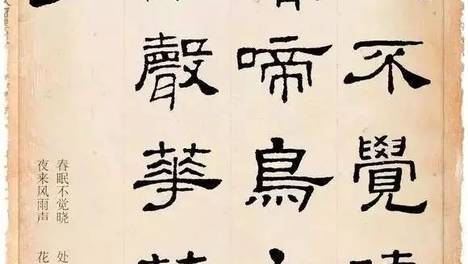 不覺
啼鳥
聲華
春眠不觉晓 处
夜来风雨声 花